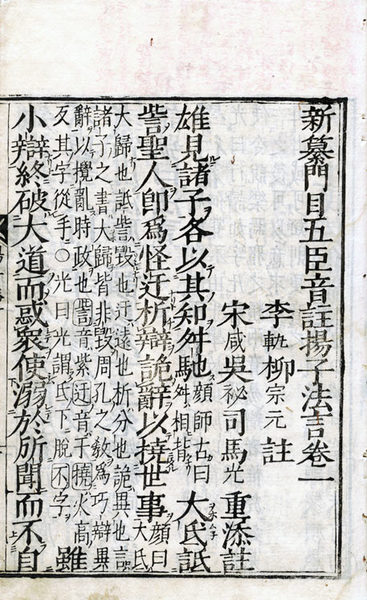 新纂門目五臣音註揚子法言卷一
李軌柳宗元 註
宋咸吳祕司馬光 重添註
雄見諸子各以其知舛馳舛相背也顔師古曰大氐詆
訾聖人即爲怪迂析辯詭辭以撓世事顔曰大氐
大歸也詆訾毀也迂遠也析分也詭異也言
諸子之書大歸皆非毀周孔之敎爲巧辯異
辭以攪亂時政也訾音紫迂音于撓火高
反其字從手○光曰光謂氐下脫不字雖
小辯終破大道而惑衆使溺於所聞而不自